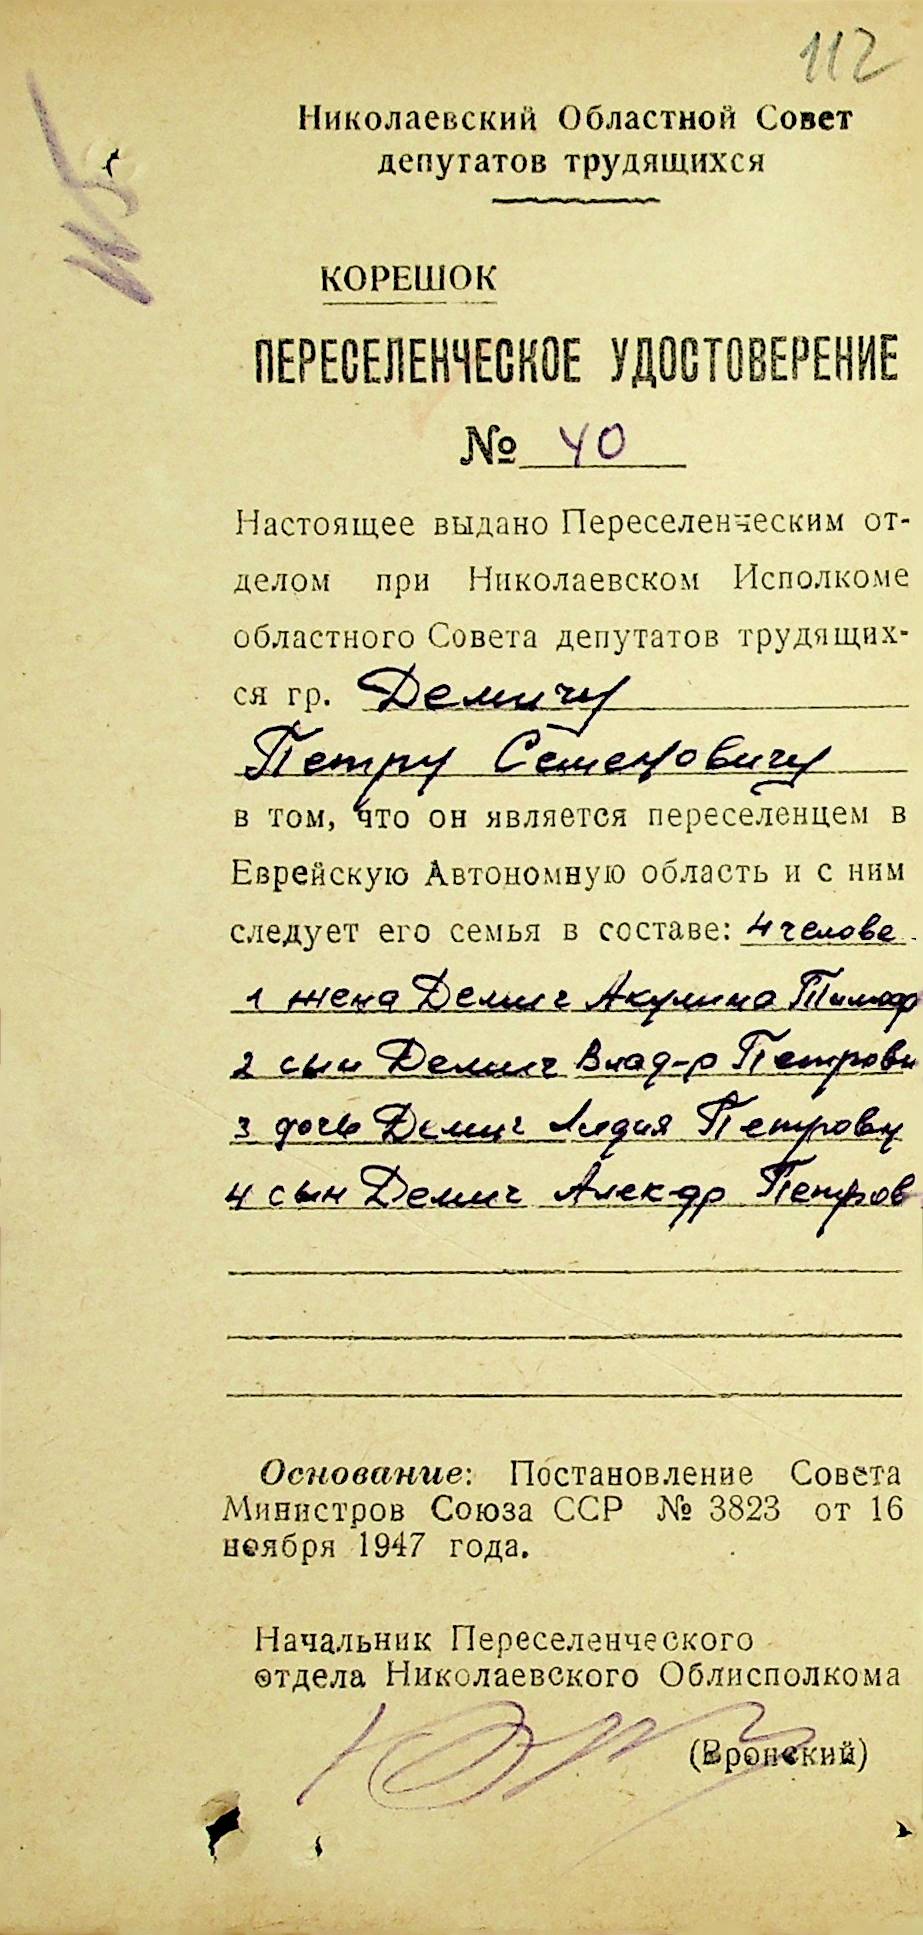 112
Николаевский Областной Совет
депутатов трудящихся
КОРЕШОК
ПЕРЕСЕЛЕНЧЕСКОЕ УДОСТОВЕРЕНИЕ
№ 40
Настоящее выдано Переселенческим от-
делом при Николаевском Исполкоме
областного Совета депутатов трудящих-
ся гр. Демичу
Петру Семеновичу
в том, что он является переселенцем в
Еврейскую Автономную область и с ним
следует его семья в составе: 4 челове
1 жена Демич Акулина Тимоф
2 сын Демич Влад-р Петрови
3 дочь Демич Лидия Петровн
4 сын Демич Алек-др Петров
Основание: Постановление Совета
Министров Союза ССР № 3823 от 16
ноября 1947 года.
Начальник Переселенческого
отдела Николаевского Облисполкома
(Вронский)